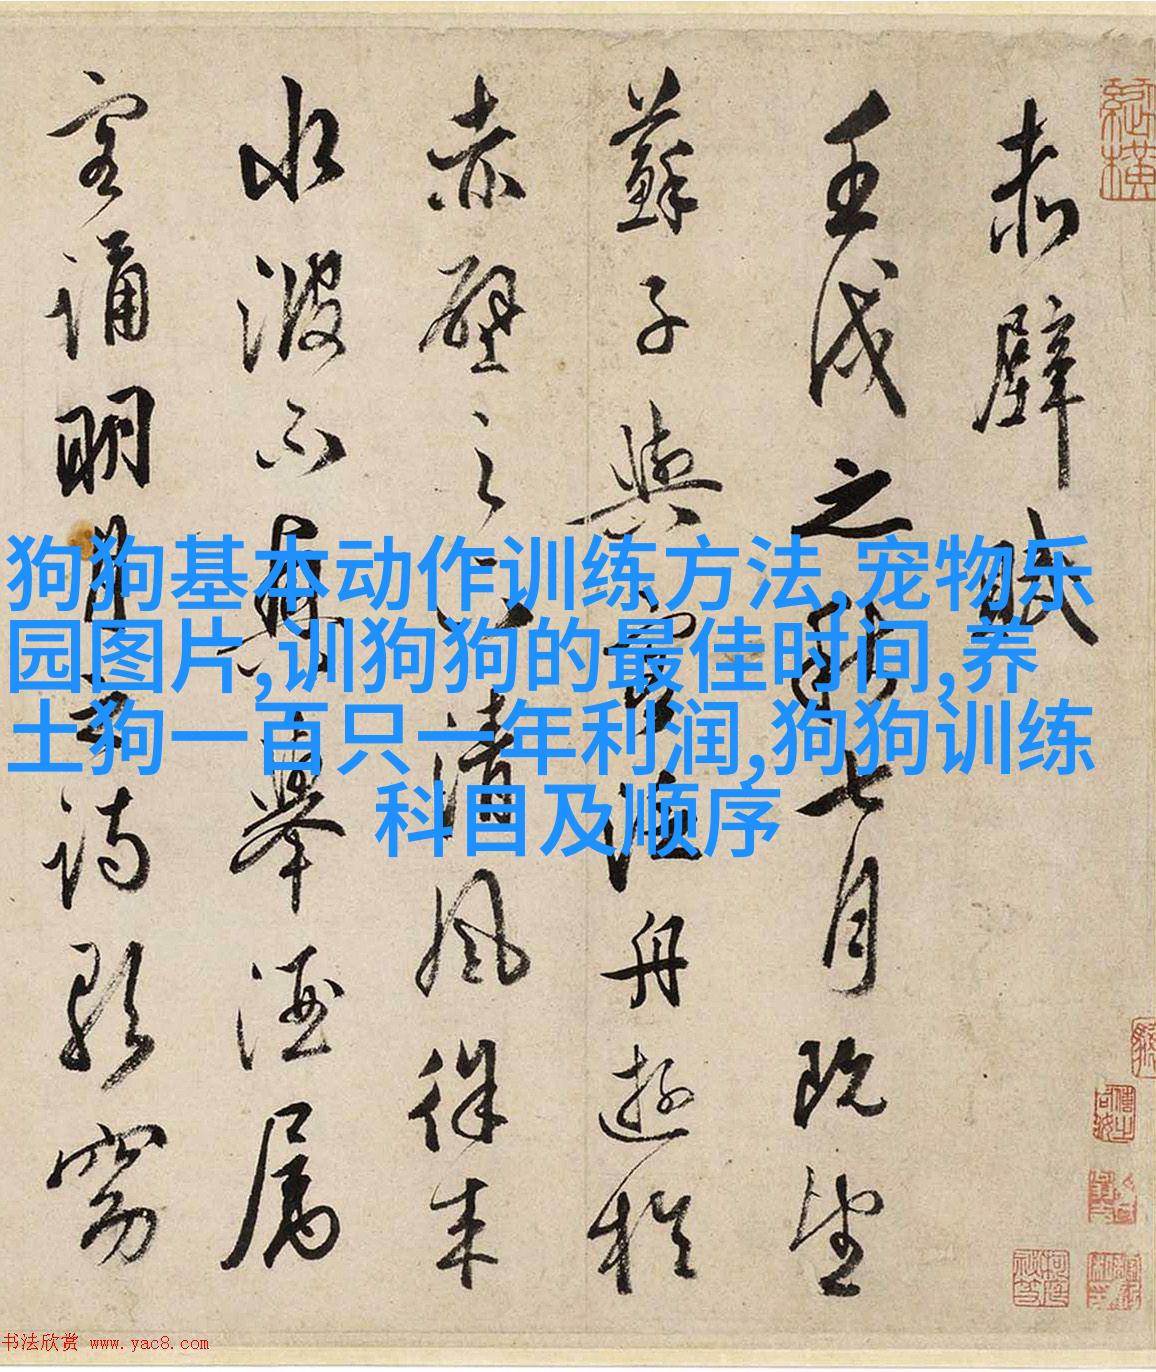 狗狗基本动作训练方法,宠物乐
园图片,训狗狗的最佳时间,养
土狗一百只一年利润,狗狗训练
科目及顺序
赤壁賦
壬戌之秋七月既望
蘇子與客泛舟遊於
赤壁之下清風徐来
水波不興舉酒屬
客誦明月之詩歌窈
书法欣赏 www.yac8.com